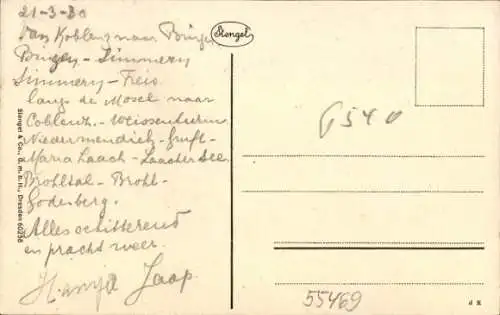 21-3-30
Van Koblenz naar Bingen
Bingen - Simmern
Simmern - Treis
langs de Mosel naar
Coblenz. - Weissenturm
Niedermendich - Gruft -
Maria Laach - Laacher See.
Brohltal - Brohl -
Godesberg.
Alles schitterend
en pracht weer.
Jaap
Stengel & Co., G. m. b. H., Dresden 60256
Stengel
6540
55469